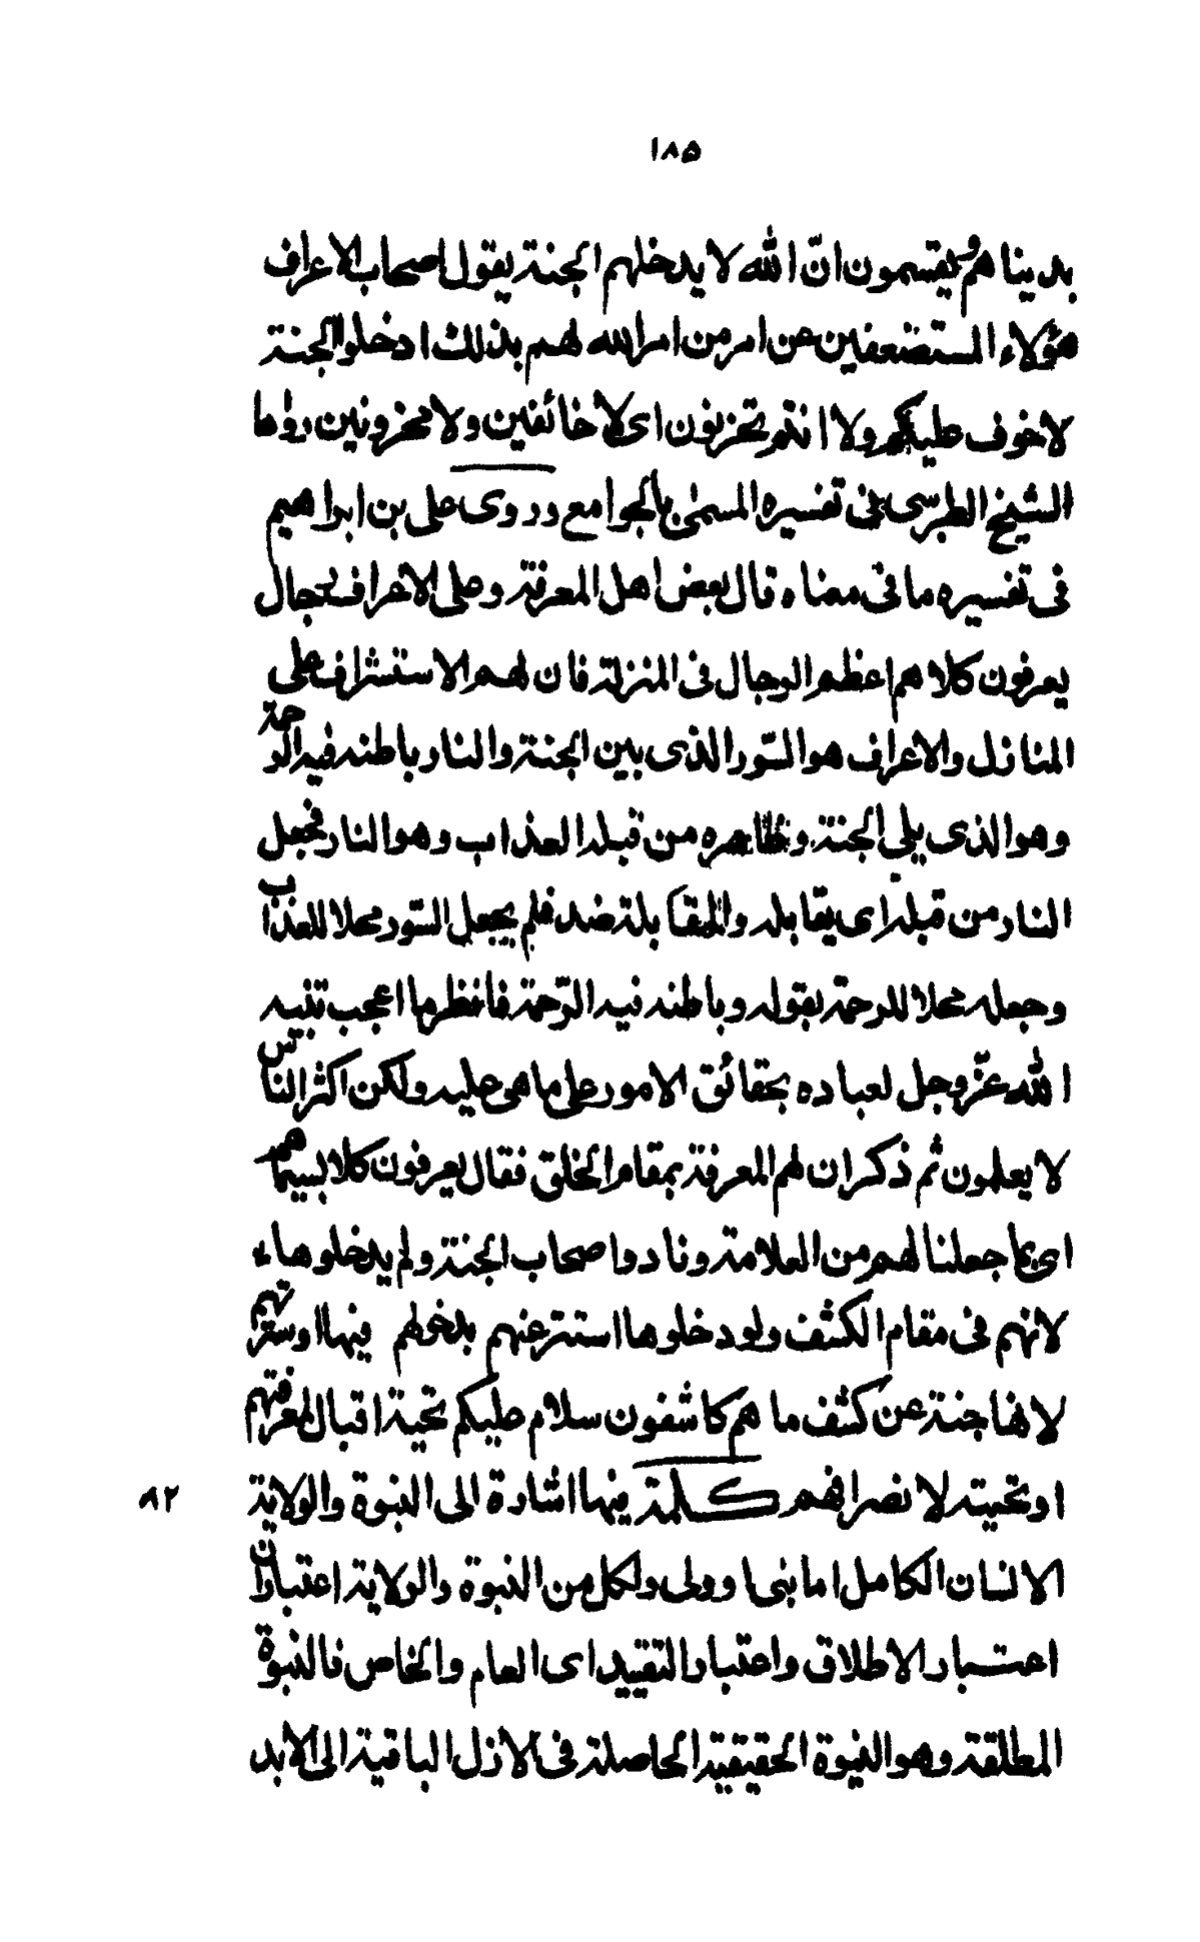 ۱۸۵
بدنیاهم ویقسمون انّ الله لا یدخلهم الجنة یقول اصحاب الاعراف
هؤلاء المستضعفین عن امر من امر الله لهم بذلک ادخلوا الجنة
لاخوف علیکم ولا انتم تحزنون ای لاخائفین ولا محزونین رواها
الشیخ الطبرسی فی تفسیره المسمی بالجوامع وروی علی بن ابراهیم
فی تفسیره ما فی معناه قال بعض اهل المعرفة وعلی الاعراف رجال
یعرفون کلا هم اعظم الرجال فی المنزلة فان لهم الاستشراف علی
المنازل والاعراف هو السّور الذی بین الجنة والنار باطنه فیه الرحمة
وهو الذی یلی الجنة وظاهره من قبله العذاب وهو النار فجعل
النار من قبله ای یقابله والمقابلة ضد فلم یجعل السّور محلا للعذاب
وجعله محلا للرحمة بقوله وباطنه فیه الرّحمة فانظر ما اعجب تنبیه
الله عزّ وجل لعباده بحقائق الامور علی ما هی علیه ولکن اکثر الناس
لا یعلمون ثم ذکر ان لهم المعرفة بمقام الخلق فقال یعرفون کلا بسیماهم
ای بما جعلنا لهم من العلامة ونادوا اصحاب الجنة ولم یدخلوها
لانهم فی مقام الکشف ولو دخلوها استتر عنهم بدخولهم فیها او سترتهم
لانها جنة عن کشف ما هم کاشفون سلام علیکم تحیة اقبال لمعرفتهم
او تحیته لانصرافهم کلمة فیها اشارة الی النبوة والولایة
۸۲
الانسان الکامل اما نبی او ولی ولکل من النبوة والولایة اعتباران
اعتبار الاطلاق واعتبار التقیید ای العام والخاص فالنبوة
المطلقة وهو النبوة الحقیقیة الحاصلة فی الازل الباقیة الی الابد